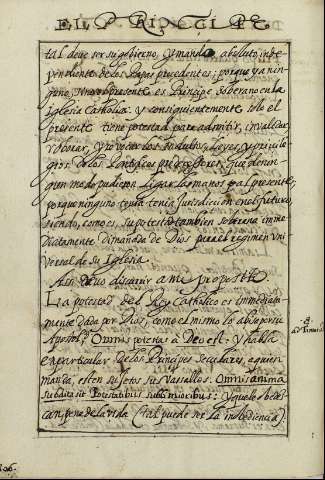 EL P. RINCTI AC.
tal deue ser su gobierno, y mando absoluto, inde-
pendiente de los Papas precedentes: porque ya nin-
guno, sino el presente es Principe soberano en la
Iglesia Catholica: y consiguientemente solo el
presente tiene potestad para admitir, invalidar,
reuocar, y los Indultos, Leyes, y privile-
gios de los Pontifices predecessores, que de nin-
gun modo pudieron ligar las manos pal presente,
porque ninguno tenia jurisdiccion en el futuro,
siendo, como es, su potestad tambien soberana imme-
diatamente dimanada de Dios para el regimen uni-
versal de su Iglesia.
Assi discurrir a mi proposito
La potestad del Rey Catholico es immediata-
mente dada por Dios, como el mismo lo dixo por su
Apostol. Omnis potestas à Deo est: y habla
en particular de los Principes seculares, a quien
manda, esten sujetos sus vassallos. Omnis anima
subdita sit Potestatibus sublimioribus: y que le obedez-
can, pena de la vida (tal puede ser la inobediencia)
ad